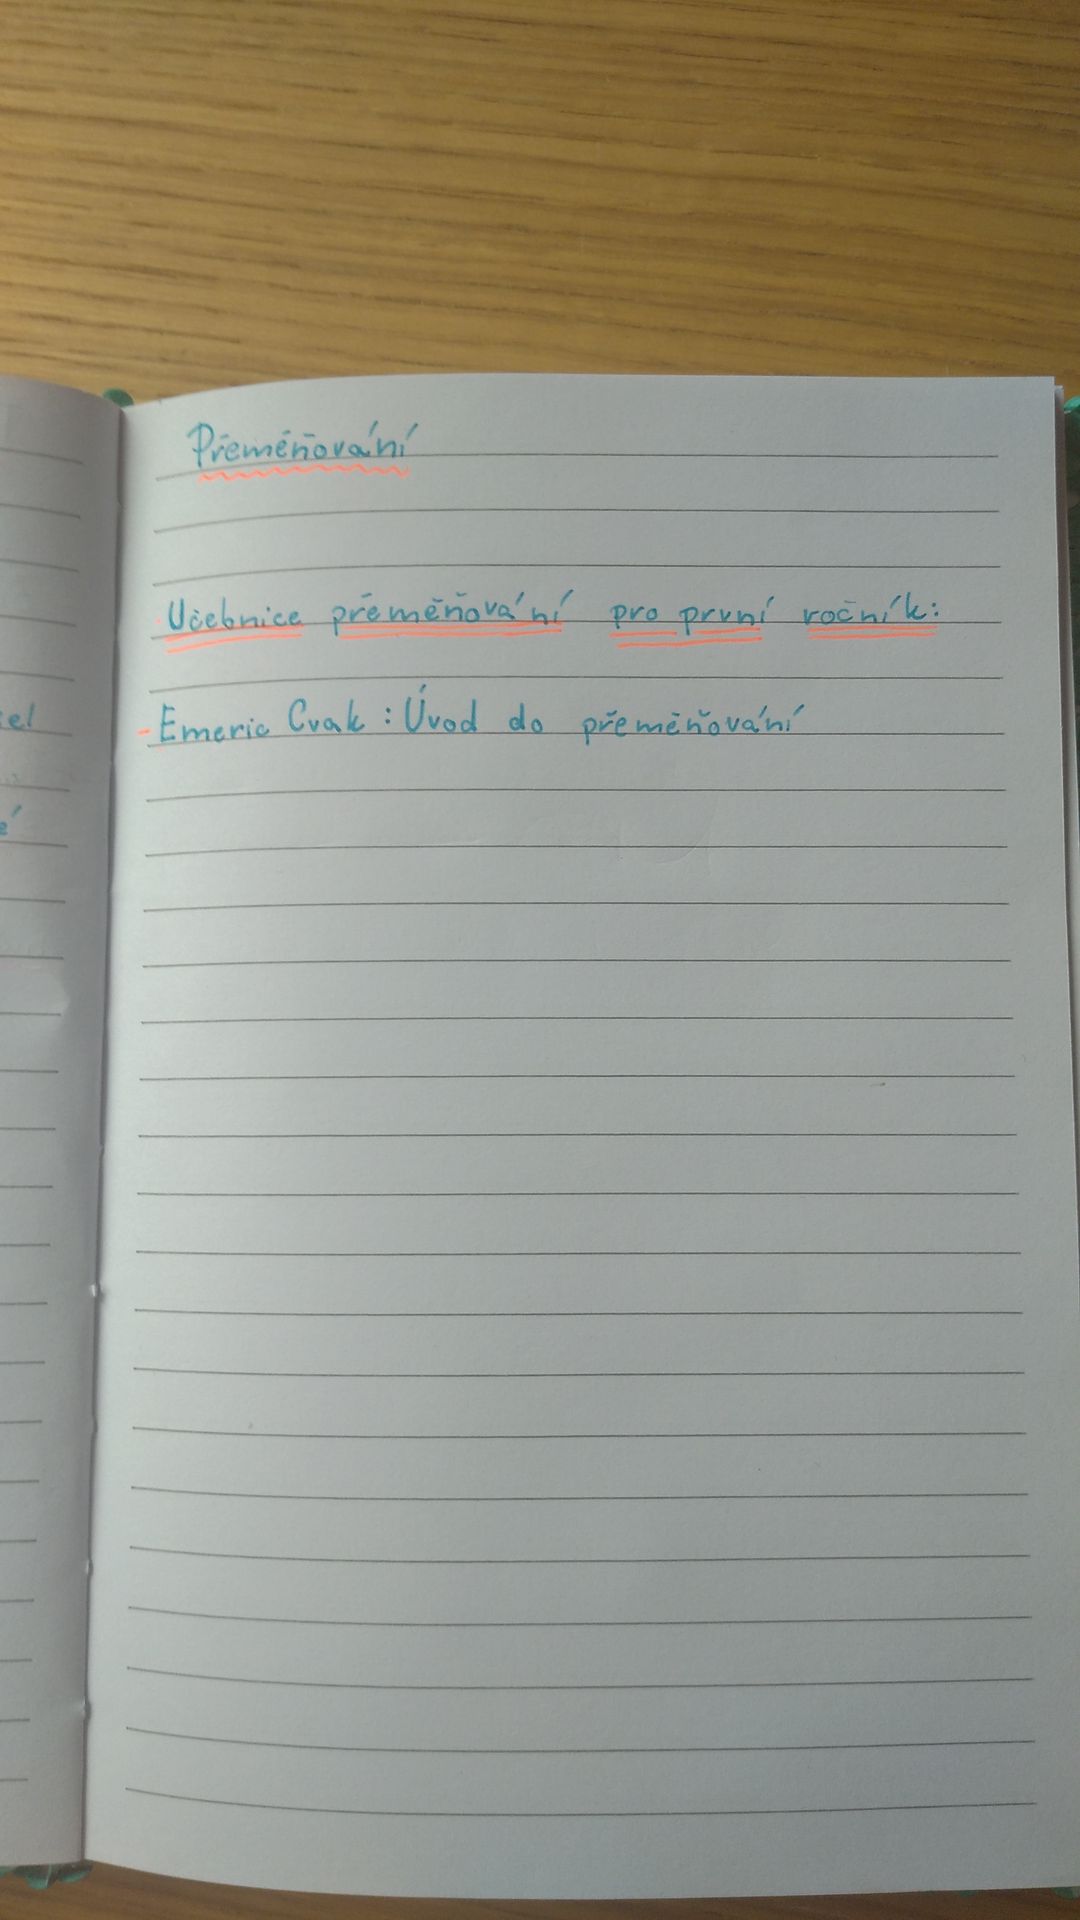 Přeměňování
Učebnice přeměňování pro první ročník:
- Emeric Cvak : Úvod do přeměňování